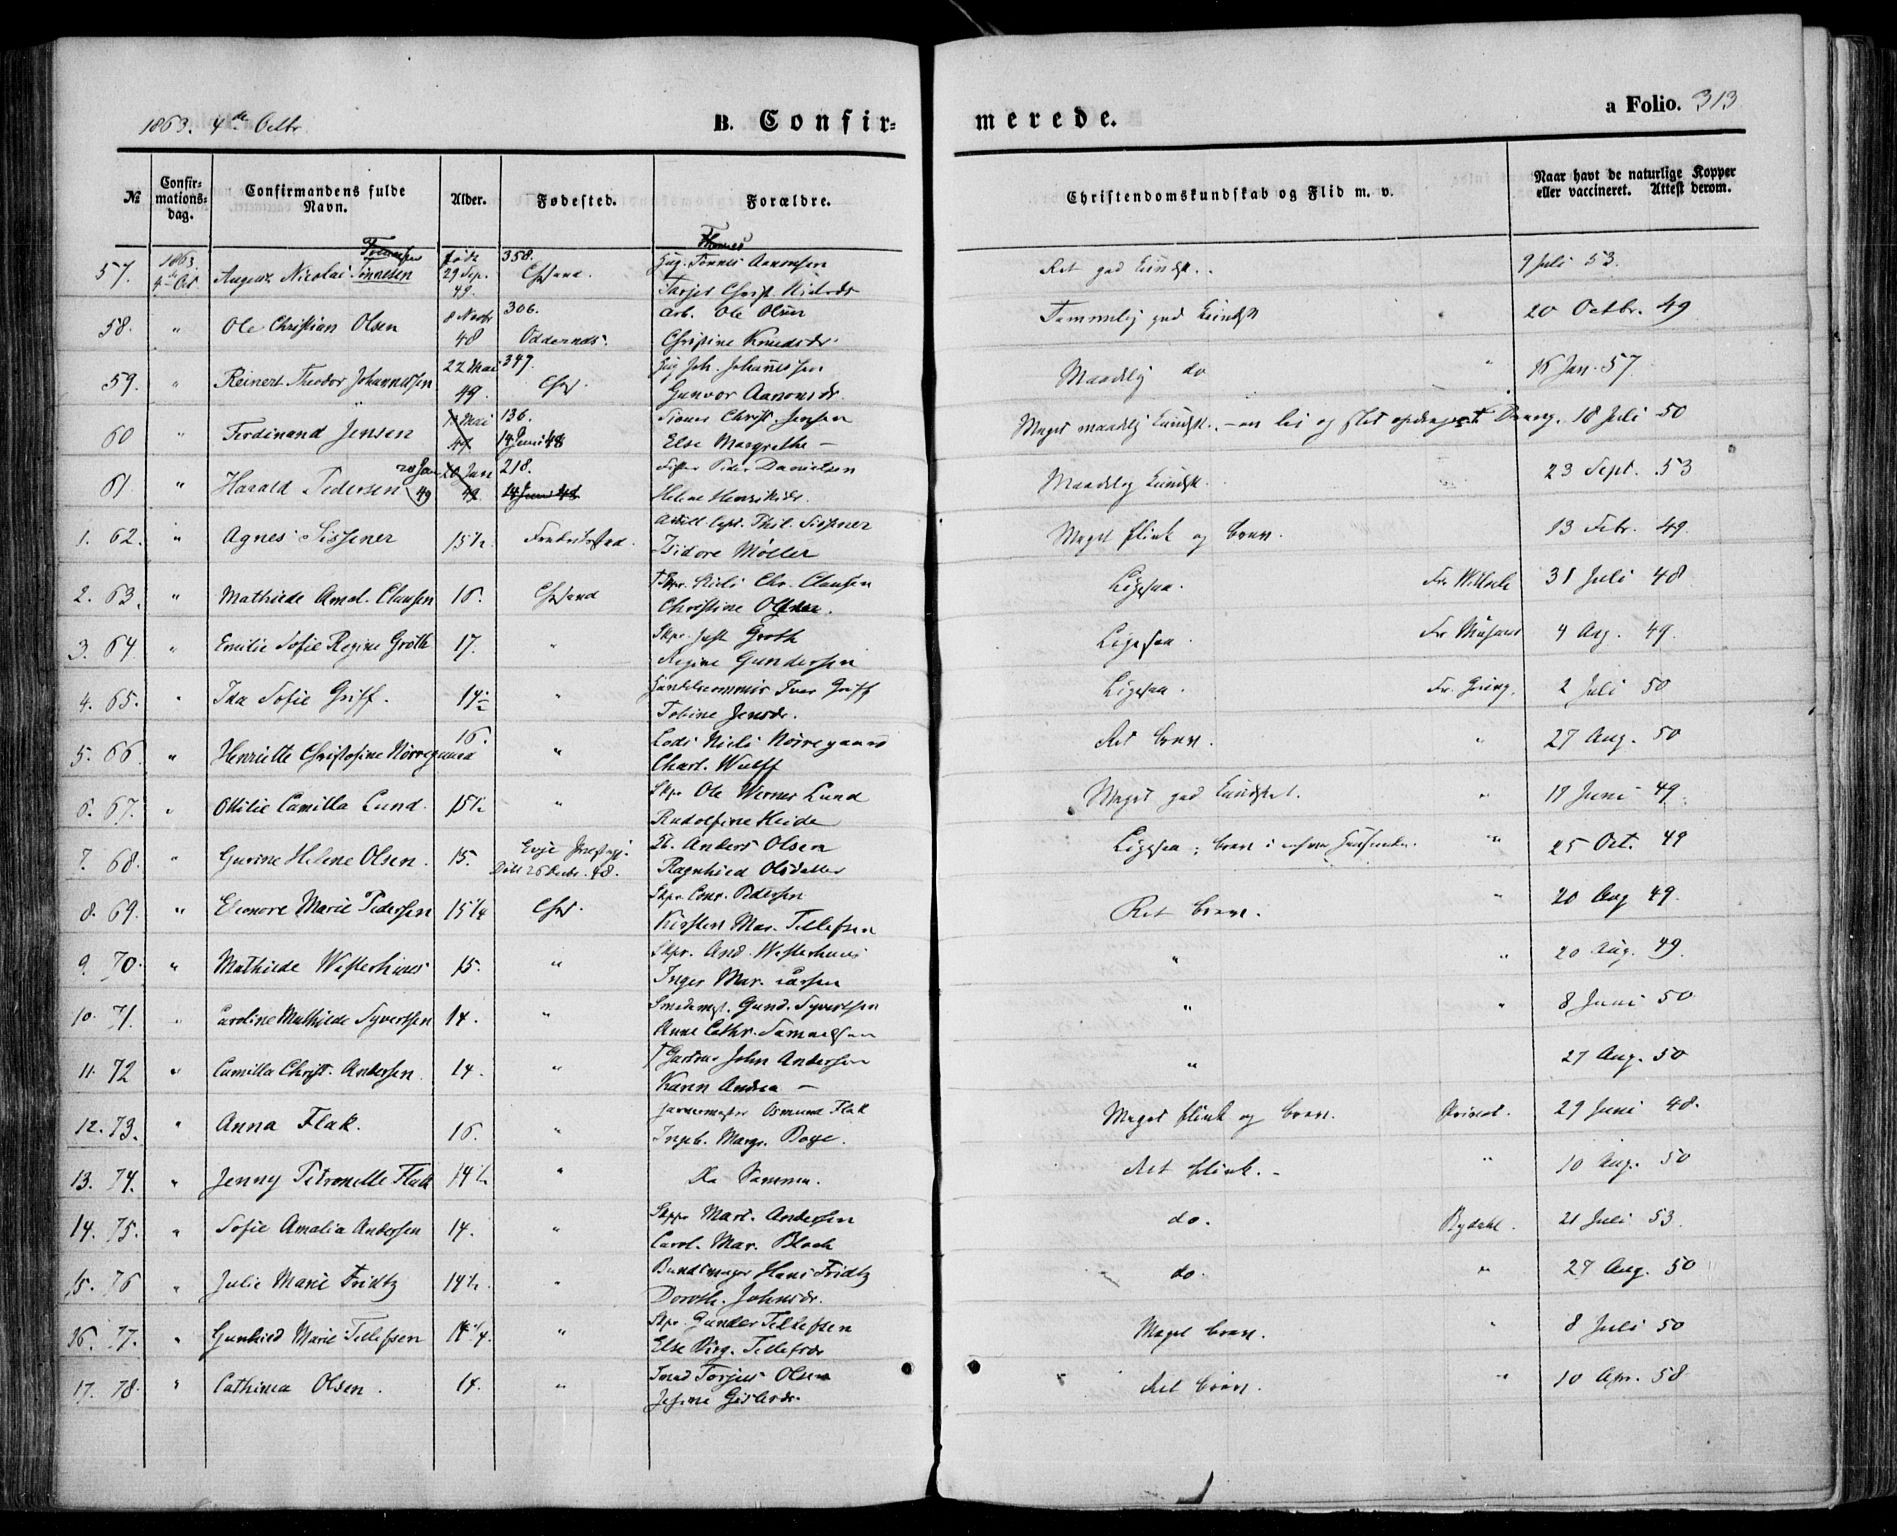 1863. 4de Octbr.
B. Confirmerede.
a Folio. 313
№ Confirmationsdag. Confirmandens fulde Navn. Alder. Fødested. Forældre. Christendomskundskab og Flid m. v. Naar havt de naturlige Kopper eller vaccineret. Attest derom.
57. 1863. 4de Oct August Nicolai Tønnesen født 29 Sep. 49. 358. Chsand. Tønnes Aanonsen Ret god Kundsk. 9 Juli 53.
58. " Ole Christian Olsen 8 Novbr 48 306. Oddernes. Arb. Ole Olsen Temmelig god Kundsk 20 Octbr. 49
Christine Knudsdr.
59. " Reinert Theodor Johannessen 22 Mai 49. 347. Chs. Joh. Johannessen Maadelig do " 16 Jan. 57
Gunvor Aanonsdr.
60 " Ferdinand Jensen Mai 136. 14 Juni 48 Christ. Jensen Meget maadelig Kundsk. - en og slet opdraget Dreng. 18 Juli 50
Else Margrethe —
61 " Harald Pedersen 20 Jan 49 218. 14 Juni 48 Fisker Peder Danielsen Maadelig Kundsk. 23 Sept. 53
Helene Henriksdr.
1. 62. " Agnes Sissener 15½ Frederikstad. Capt. Thil. Sissener Meget flink og brav. 13 Febr. 49.
Isidore Møller
2. 63. " Mathilde Amal. Clausen 16. Chsand † Skpr. Niels Chr. Clausen Ligesaa. 31 Juli 48
Christine Olsen.
3. 64 " Emilie Sofie Regine Groth 17. " Skpr. Just Groth Ligesaa. 4 Aug. 49.
Regine Gundersen
4. 65. " Ida Sofie Griff. 14½ " Iver Griff Ligesaa. 2 Juli 50
Tobine Jensdr.
5. 66 " Henriette Christofine Nørregaard 16. " Lods Niels Nørregaard Ret brav. " 27 Aug. 50
Charl. Wulff
6. 67. " Ottilie Camilla Lund. 15½ " Skpr Ole Werner Lund Meget god Kundskab. " 18 Juni 49.
Rudolfine Heide
7. 68. " Gurine Helene Olsen. 15. Evje Præstegj. Anders Olsen Ligesaa; brav " 25 Oct. 49
Ragnhild Olsdatter
8. 69. " Eleonore Marie Pedersen 15¼ Chs. Skpr. Conr. Pedersen Ret brav. " 20 Aug 49.
Kirsten Mar. Tellefsen
9. 70. " Mathilde Westerhuus 15. " Skpr. And. Westerhuus " " 20 Aug. 49.
Inger Mar. Larsen
10. 71. " Caroline Mathilde Syvertsen 14. " Smedemst. Gund. Syvertsen " " 8 Juni 50
Anne Cathr. Samuelsen
11. 72 " Camilla Christ. Andersen 14. " † John Andersen " 27 Aug. 50
Karen Andrea —
12. 73. " Anna Flak. 16. " Osmund Flak Meget flink og brav. Privat. 29 Juni 48.
Ingeb. Margr. Boye.
13. 74. " Jenny Petronelle Flak 14½ " De Samme. Ret flink. - " 10 Aug. 50
14. 75. " Sofie Amalia Andersen 14. " Skppr Mart. Andersen do. Bydahl. 21 Juli 53.
Carol. Mar. Bloch
15. 76 " Julie Marie Fridtz 14½. " Bundtmager Hans Fridtz do. " 27 Aug. 50
Doroth. Johnsdr.
16. 77. " Gunhild Marie Tellefsen 14¼. " Skpr. Gunder Tellefsen Meget brav. " 8 Juli 50
Else Birg. Tellefsdr
17. 78. " Cathinca Olsen. 14. " Smed Torjus Olsen Ret brav. " 10 Apr. 58
Jesine Gislesdr.